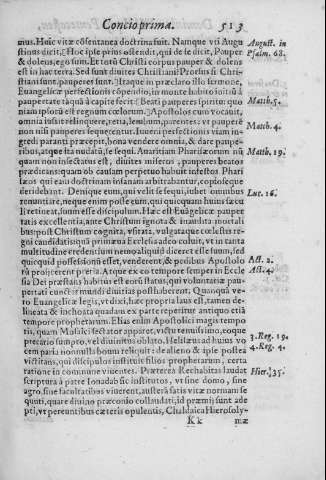 Concio prima. 513
mus. Huic vitæ cõsentanea doctrina fuit. Namque vti Augu
stinus dixit: Hoc ipse prius ostendit, qui de se dixit, Pauper
& dolens, ego sum. Et totũ Christi corpus pauper & dolens
est in hac terra. Sed sunt diuites Christiani: Prorsus si Chri-
stiani sunt, pauperes sunt. Itaque in præclaro illo sermone,
Euangelicæ perfectionis cõpendio, in monte habito initiũ à
paupertate tãquã à capite fecit: Beati pauperes spiritu: quo
niam ipsorũ est regnum cœlorum. Apostolos cum vocauit,
omnia iussit relinquere, retia, lembum, parentes: vt pauperẽ
non nisi pauperes sequerentur. Iuueni perfectionis viam in-
gredi paranti præcepit, bona vendere omnia, & dare paupe-
ribus, atque ita nudatũ, se sequi. Auaritiam Pharisæorum nũ
quam non insectatus est, diuites miseros, pauperes beatos
prædicans: quam ob causam perpetuo habuit infestos Phari
sæos qui eam doctrinam insanam arbitrabantur, eoq́ipsoque
deridebant. Denique eum, qui velit se sequi, iubet omnibus
renuntiare, neque enim posse eum, qui quicquam huius sæcu
li retineat, suum esse discipulum. Hæc est Euãgelicæ pauper
tatis excellentia, ante Christum ignota & inaudita mortali
bus: post Christum cognita, vsitata, vulgataque cœlestis re-
gni candidatis: quã primæua Ecclesia adeo coluit, vt in tanta
multitudine credentium nemo aliquid diceret esse suum, sed
quicquid possessionũ esset, venderent, & pedibus Apostolo
rũ proijcerent pretia. Atque ex eo tempore semper in Eccle
sia Dei præstans habitus est eorũ status, qui voluntariæ pau-
pertati cunctæ mundi diuitias posthuberent. Quanquã ve-
ro Euangelicæ legis, vt dixi, hæc propria laus est, tamen de-
lineata & inchoata quadam ex parte reperitur antiquo etiã
tempore prophetarum. Elias enim Apostolici magis tempo
ris, quam Mosaici sectator apparet, victu tenuissimo, eoque
precario sumpto, vel diuinitus oblato. Helisæus ad huius vo
cem paria nonnulla boum reliquit: de alieno & ipse postea
victitans, qui discipulos instituit filios prophetarum, certa
ratione in commune viuentes. Præterea Rechabitas laudat
scriptura à patre Ionadab sic institutos, vt sine domo, sine
agro, sine facultatibus viuerent, austerã satis vitæ normam se
quuti, quare diuino præconio collaudati, id præmij sunt ade
pti, vt pereuntibus cæteris opulentis, Chaldaica Hierosoly-
Kk mæ
August. in
Psalm. 68.
Matth. 5.
Matth. 4.
Matth. 19.
Luc. 16.
Act. 2.
Act. 4.
3. Reg. 19.
4. Reg. 4.
Hier. 35.